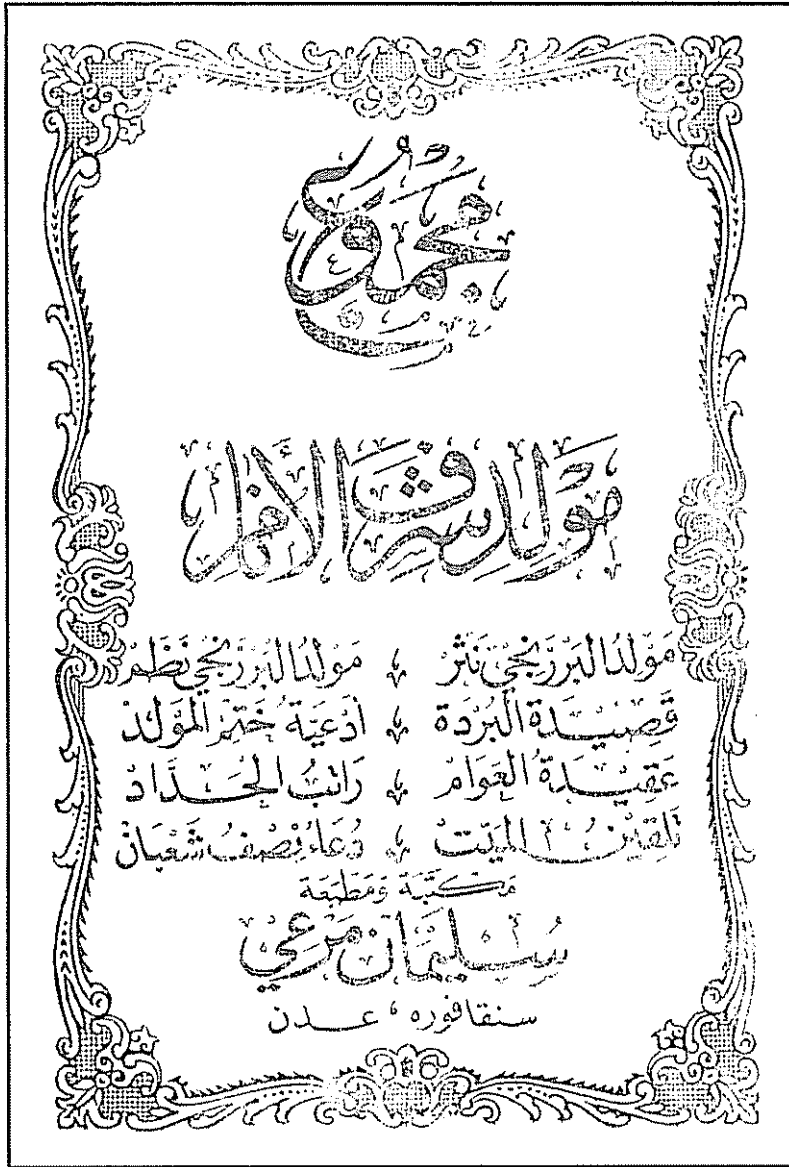 مجموع
مَوْلِد شرف الأنام
مَوْلِدُ الْبَرْزَنْجِيْ نَثَرْ ، مَوْلِدُ الْبَرْزَنْجِيْ نَظَمْ
قَصِيْدَةُ الْبُرْدَة ، أَدْعِيَةُ خَتْمِ الْمَوْلِدْ
عَقِيْدَةُ الْعَوَام ، رَاتِبُ الْحَدَّادْ
تَلْقِيْنُ الْمَيِّتْ ، دُعَاءُ نِصْفُ شَعْبَانْ
مَكتَبَة وَمَطبَعَة
سُلَيْمَان مَرْعِي
سنقافوره ، عدن